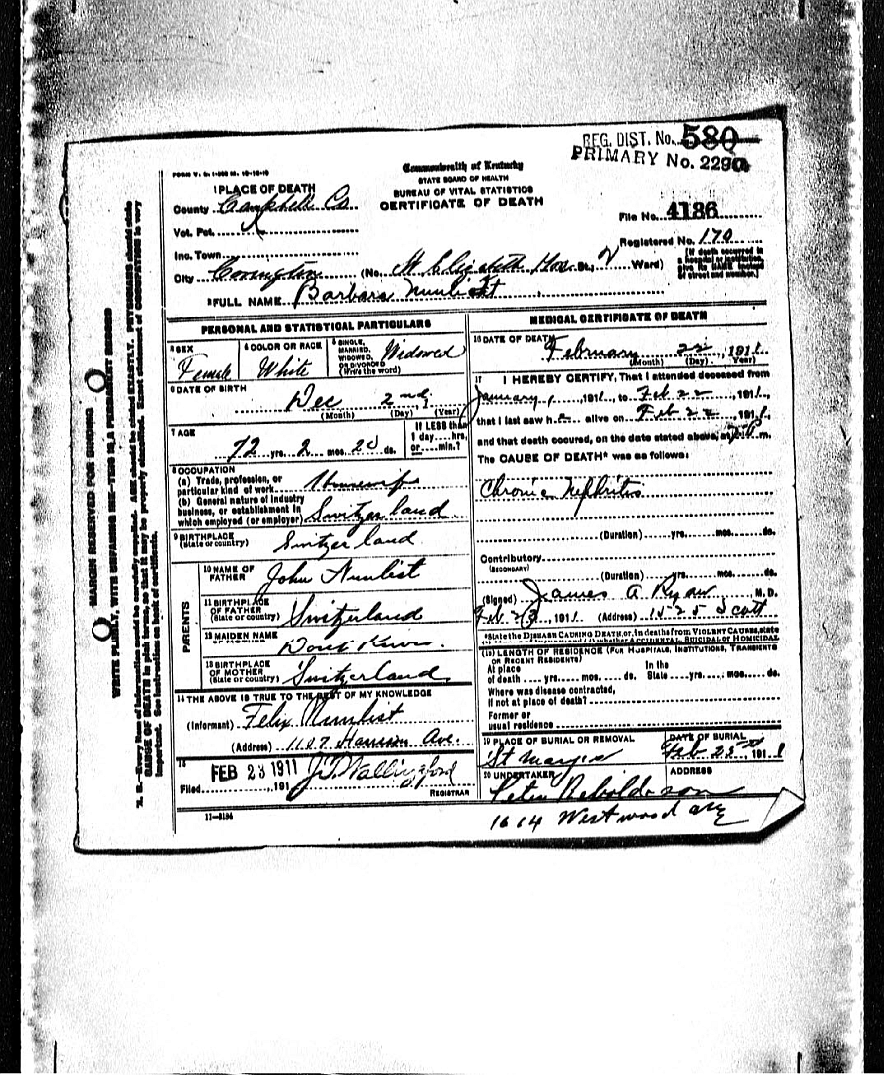 REG. DIST. No. 580
PRIMARY No. 2290
Commonwealth of Kentucky
STATE BOARD OF HEALTH
BUREAU OF VITAL STATISTICS
CERTIFICATE OF DEATH
1 PLACE OF DEATH
County Campbell Co
Vot. Pct.
Inc. Town
City Covington (No. St Elizabeth Hos. St., 2 Ward)
File No. 4186
Registered No. 170
[If death occurred in a hospital or institution, give its NAME instead of street and number.]
2 FULL NAME Barbara
PERSONAL AND STATISTICAL PARTICULARS
3 SEX Female
4 COLOR OR RACE White
5 SINGLE, MARRIED, WIDOWED, OR DIVORCED (Write the word) Widowed
6 DATE OF BIRTH
Dec 2nd
(Month) (Day) (Year)
7 AGE
72 yrs. 2 mos. 20 ds.
If LESS than 1 day....hrs, or....min.?
8 OCCUPATION
(a) Trade, profession, or particular kind of work Housewife
(b) General nature of industry business, or establishment in which employed (or employer) Switzerland
9 BIRTHPLACE (State or country) Switzerland
PARENTS
10 NAME OF FATHER John Nunlist
11 BIRTHPLACE OF FATHER (State or country) Switzerland
12 MAIDEN NAME OF MOTHER Dont Know
13 BIRTHPLACE OF MOTHER (State or country) Switzerland
14 THE ABOVE IS TRUE TO THE BEST OF MY KNOWLEDGE
(Informant) Felix Nunlist
(Address) 1107 Harrison Ave.
15
Filed FEB 23 1911, 191 J. T. Wallingford
REGISTRAR
11-3184
MEDICAL CERTIFICATE OF DEATH
16 DATE OF DEATH
February 22, 1911
(Month) (Day) (Year)
17 I HEREBY CERTIFY, That I attended deceased from
January 1, 1911, to Feb 22, 1911,
that I last saw h e alive on Feb 22, 1911,
and that death occured, on the date stated above, at m.
The CAUSE OF DEATH* was as follows:
Chronic Nephritis
(Duration) yrs. mos. ds.
Contributory
(SECONDARY)
(Duration) yrs. mos. ds.
(Signed) James A Ryan M. D.
Feb. 23, 1911 (Address) 1525 Scott
*State the DISEASE CAUSING DEATH, or, in deaths from VIOLENT CAUSES, state
(18) LENGTH OF RESIDENCE (FOR HOSPITALS, INSTITUTIONS, TRANSIENTS OR RECENT RESIDENTS)
At place of death .... yrs. .... mos. .... ds. In the State .... yrs. .... mos. .... ds.
Where was disease contracted, if not at place of death?
Former or usual residence
19 PLACE OF BURIAL OR REMOVAL St Marys
DATE OF BURIAL Feb 25th, 1911
20 UNDERTAKER ADDRESS
Peter Rebold & son
1614 Westwood ave
MARGIN RESERVED FOR BINDING
WRITE PLAINLY, WITH UNFADING INK—THIS IS A PERMANENT RECORD
N. B.—Every item of information should be carefully supplied. AGE should be stated EXACTLY. PHYSICIANS should state
CAUSE OF DEATH in plain terms, so that it may be properly classified. Exact statement of OCCUPATION is very
important. See instructions on back of certificate.